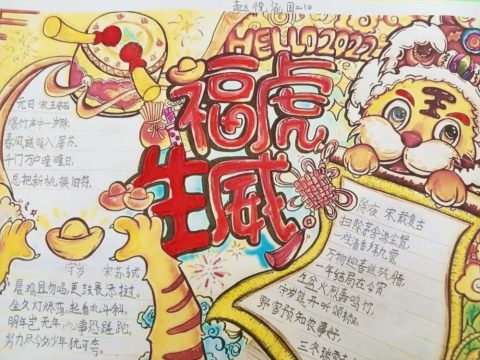 HELLO 2022
福虎
生威
元日 宋王安石
爆竹声中一岁除
春风送暖入屠苏.
千门万户曈曈日.
总把新桃换旧符.
守岁 宋苏轼
鸡且勿唱 更鼓畏添挝.
坐久灯烬落, 起看北斗斜.
明年岂无年, 心事恐蹉跎.
努力尽今夕 少年犹可夸.
除夜 宋 戴复古
扫除茅舍涤尘嚣
一炷清香拜九霄
万物迎春送残腊
一年结局在今宵
生盆火烈轰鸣竹
守岁筵开听颂椒
野客预知农事好
三冬瑞雪